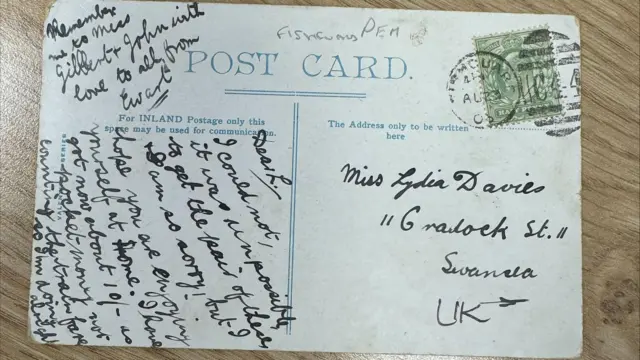 FISHGUARD PEM
POST CARD.
For INLAND Postage only this
space may be used for communication.
The Address only to be written
here
Miss Lydia Davies
"Cradock St."
Swansea
UK
Dear L.
I could not,
it was impossible
to get the pair of these
I am so sorry! but I
hope you are enjoying
yourself at home. I have
got now about 10/- as
pocket money not
counting the train fare
so am doing
alright
Remember
me to Miss
Gilbert & John with
love to all from
Ewart
AU